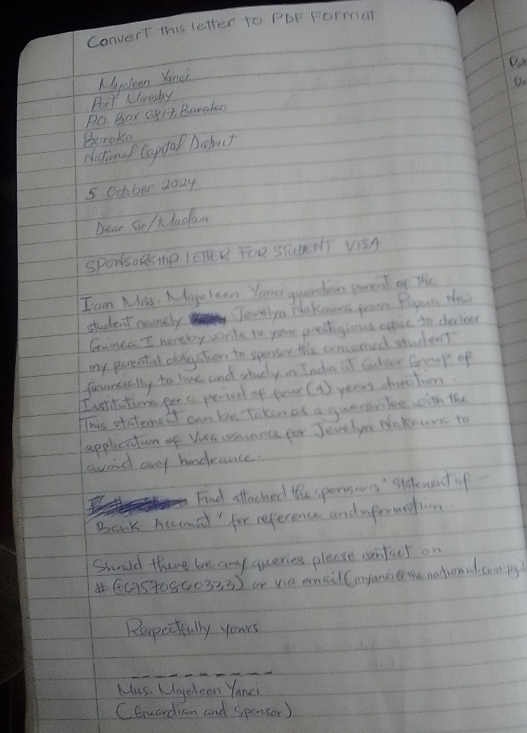 Convert this letter to PDF Format
Majeleen Yanei
Port Moresby
P.O. Box 6817, Boroko
Boroko
National Capital District
5 October 2024
Dear Sir/Madam
SPONSORSHIP LETTER FOR STUDENT VISA
I am Miss. Majeleen Yanei guardian parent of the
student namely Jevelyn Nakaure from Papua New
Guinea. I hereby write to your prestigious office to declare
my parental obligation to sponsor this concerned student
financially to live and study in India at Group of
Institutions for a period of four (4) years duration.
This statement can be taken as a guarantee with the
application of Visa issuance for Jevelyn Nakaure to
avoid any hindrance.
Find attached the sponsors' "Statement of
Bank Account" for reference and information
Should there be any queries please contact on
# or via email
Respectfully yours
Miss. Majeleen Yanei
(Guardian and Sponsor)